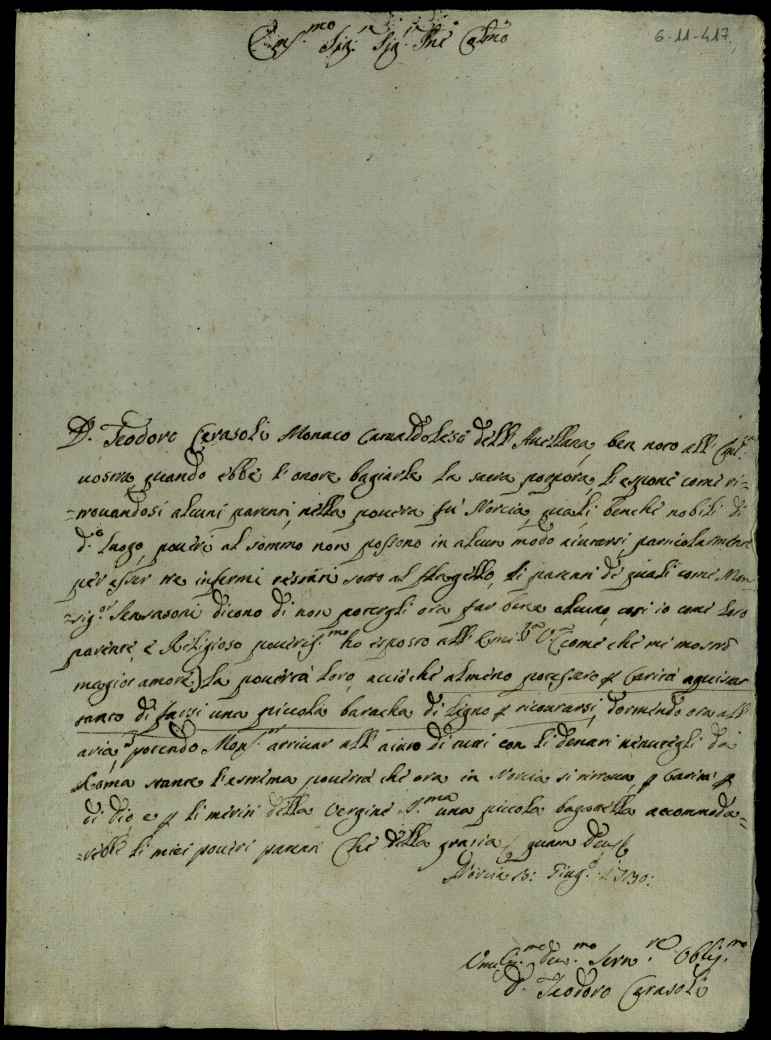 Em.mo Sig.r Sig.r Pne Colmo
6-11-417
D. Teodoro Cerasoli Monaco Camaldolese dell' Avellana, ben noto all' Em.
vostra quando ebbe l'onore bagiarle la sacra porpora, li espone come ri=
=trovandosi alcuni parenti nella povera fu Norcia, quali benche nobili di
d.o luogo, poveri al sommo non possono in alcun modo aiutarsi, particolarmente
per esser tre infermi restati sotto al flagello, li parenti de quali come Mon
=sig.r Sensasoni dicono di non potergli ora far bene alcuno, così io come loro
parente, e Religioso poveriss.mo ho esposto all' Em. V. (come che mi mostrò
magior amore) la povertà loro, acciò che almeno potessero p carità aquistar
tanto di farsi una piccola baracha di legno p ricourarsi, dormendo ora all'
aria, potendo Mons.r arrivar all' aiuto di tutti con li denari venutegli da
Roma stante l'estrema povertà che ora in Norcia si ritrova, p carità p
di Dio e p li meriti della Vergine S.ma una piccola bagatella accommoda=
=rebbe li miei poveri parenti Che della grazia quam Deus
Norcia 13: Giug.o 1730:
Umiliss.mo dev.mo Serv.re Oblig.mo
D. Teodoro Cerasoli